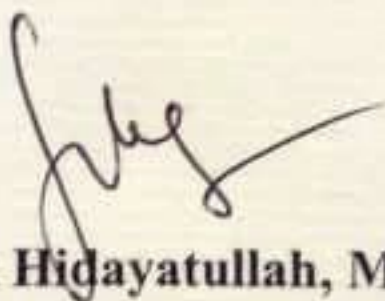 Hidayatullah, M